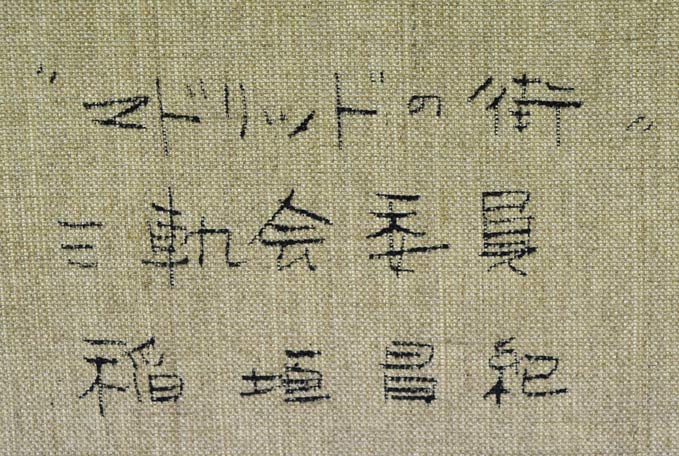 "マドリッドの街"
三軌会委員
稲垣昌紀